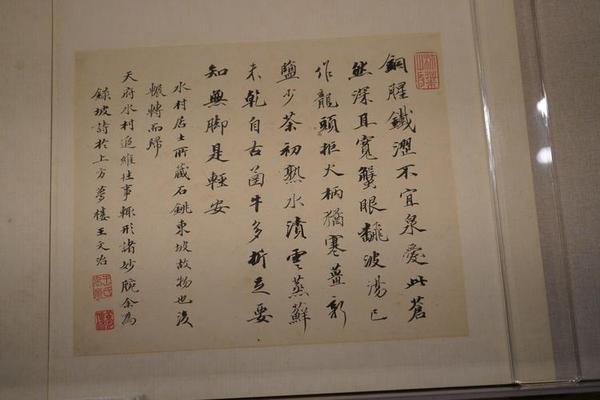 銅腥鐵澀不宜泉愛此蒼
然深且寬蟹眼翻波湯已
作龍頭拒火柄猶寒薑新
鹽少茶初熟水漬雲蒸蘚
未乾自古函牛多折足要
知無脚是輕安
水村居士所藏石銚東坡故物也後
輾轉而歸
天府水村追維往事輒形諸妙腕余為
録坡詩於上方夢樓王文治